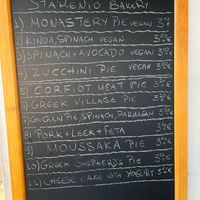 STARENIO BAKERY
1) MONASTERY PIE VEGAN
2) KINDA SPINACH VEGAN
3) SPINACH + AVOCADO VEGAN
4) ZUCCHINI PIE VEGAN
5) CORFIOT MEAT PIE
6) GREEK VILLAGE PIE
7) CHICKEN PIE, SPINACH, PARMESAN
8) PORK + LEEK + FETA
9) MOUSSAKA PIE
10) GREEK SHEPHERD'S PIE
11) CHEESE CAKE WITH YOGURT